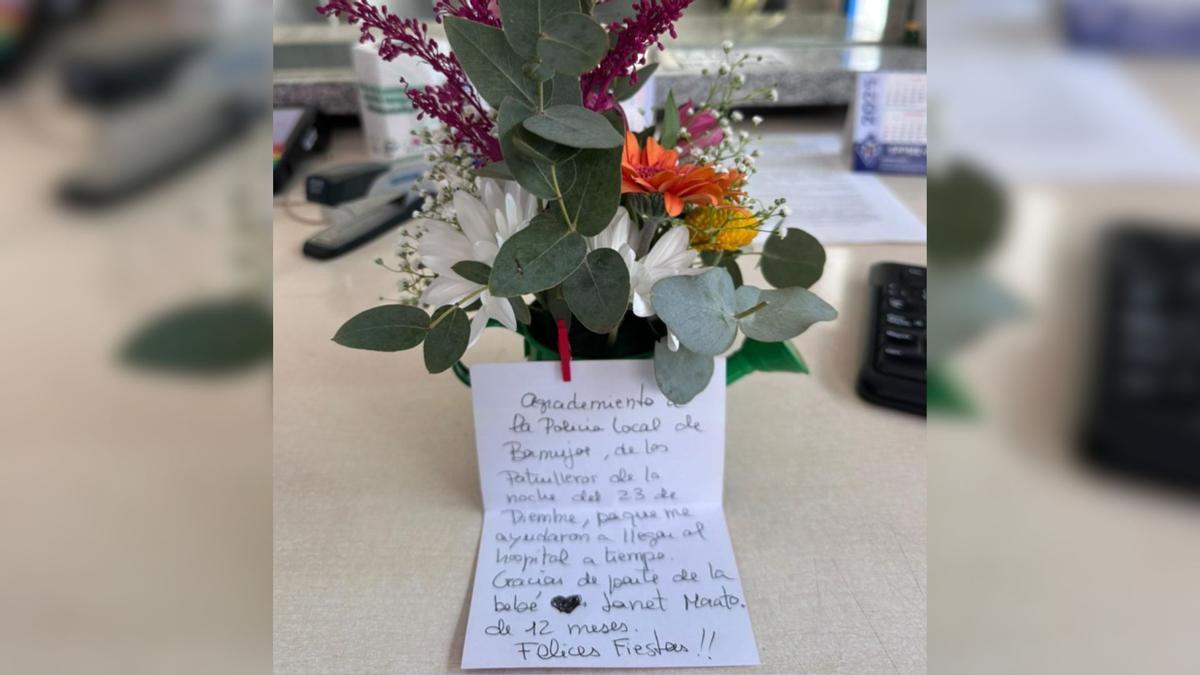 2025
Agrademiento a
la Policia Local de
Bormujos, de los
Patrulleros de la
noche del 23 de
Diembre, paque me
ayudaron a llegar al
hospital a tiempo.
Gracias de parte de la
bebé Janet Maato.
de 12 meses.
Felices Fiestas!!